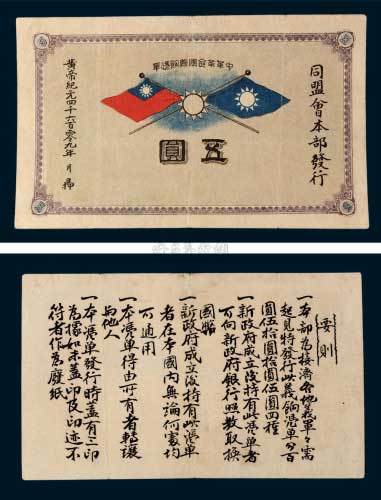 中華革命軍義餉憑單
同盟會本部發行
五圓
黃帝紀元四千六百零九年 月 號
要則
一本部為接濟各地義軍軍需
起見特發行此義餉憑單分百
圓五拾圓拾圓伍圓四種
一新政府成立後持有此憑單者
可向新政府銀行照數取換
國幣
一新政府成立後持有此憑單
者在本國內無論何處均
可通用
一本憑單得由所有者轉讓
與他人
一本憑單發行時蓋有三印
為據如未蓋印及印迹不
符者作為廢紙